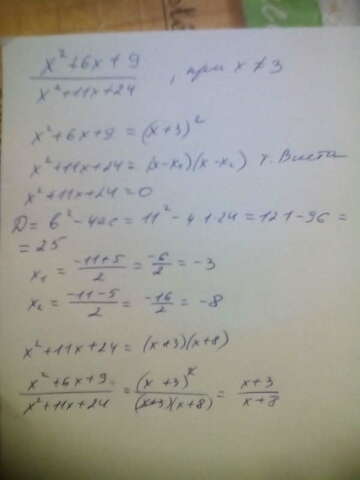 x²+6x+9 / x²+11x+24 , при x≠3
x²+6x+9 = (x+3)²
x²+11x+24 = (x-x₁)(x-x₂) т. Виета
x²+11x+24=0
D = b²-4ac = 11²-4·1·24 = 121-96 =
= 25
x₁ = -11+5 / 2 = -6 / 2 = -3
x₂ = -11-5 / 2 = -16 / 2 = -8
x²+11x+24 = (x+3)(x+8)
x²+6x+9 / x²+11x+24 = (x+3)² / (x+3)(x+8) = x+3 / x+8